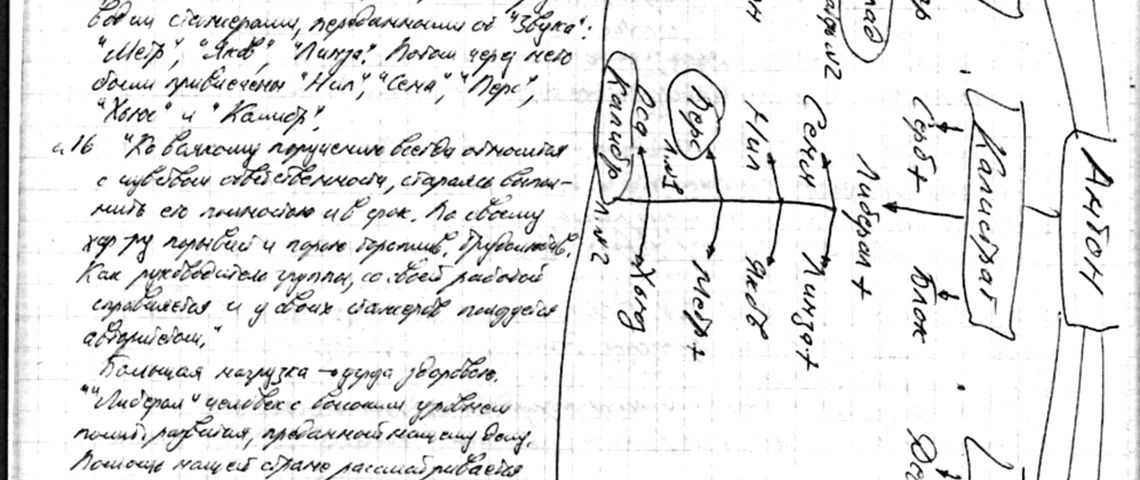 стажерами, переданными от "Звука":
"Метр", "Яков", "Линза". Потом через него
были привлечены "Нил", "Сема", "Перс",
"Хьюс" и "Калибр".
с.16 "Ко всякому поручению всегда относится
с чувством ответственности, стараясь выпол-
нить его полностью и в срок. По своему
хар-ру порывист и порою тороплив. Трудолюбив.
Как руководитель группы, со своей работой
справляется и у своих стажеров пользуется
авторитетом."
Большая нагрузка → здоровье.
"Либерал" человек с высоким уровнем
полит. развития, преданный нашему делу.
Помощь нашей стране рассматривается
Антон
Калистрат
Серб+
Блок
Либерал+
Сема
Линза+
Нил
Яков
Перс
Метр+
Оса
Хьюз
Калибр